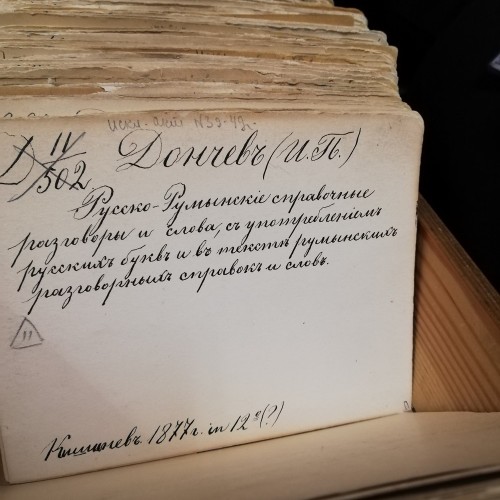 искл. акт N33-49г.
IV
D 302
Дончевъ (И.П.)
Русско-Румынскіе справочные
разговоры и слова, съ употребленіемъ
русскихъ буквъ и въ текстѣ румынскихъ
разговорныхъ справокъ и словъ.
11
Кишиневъ. 1877 г. in 12º (?)